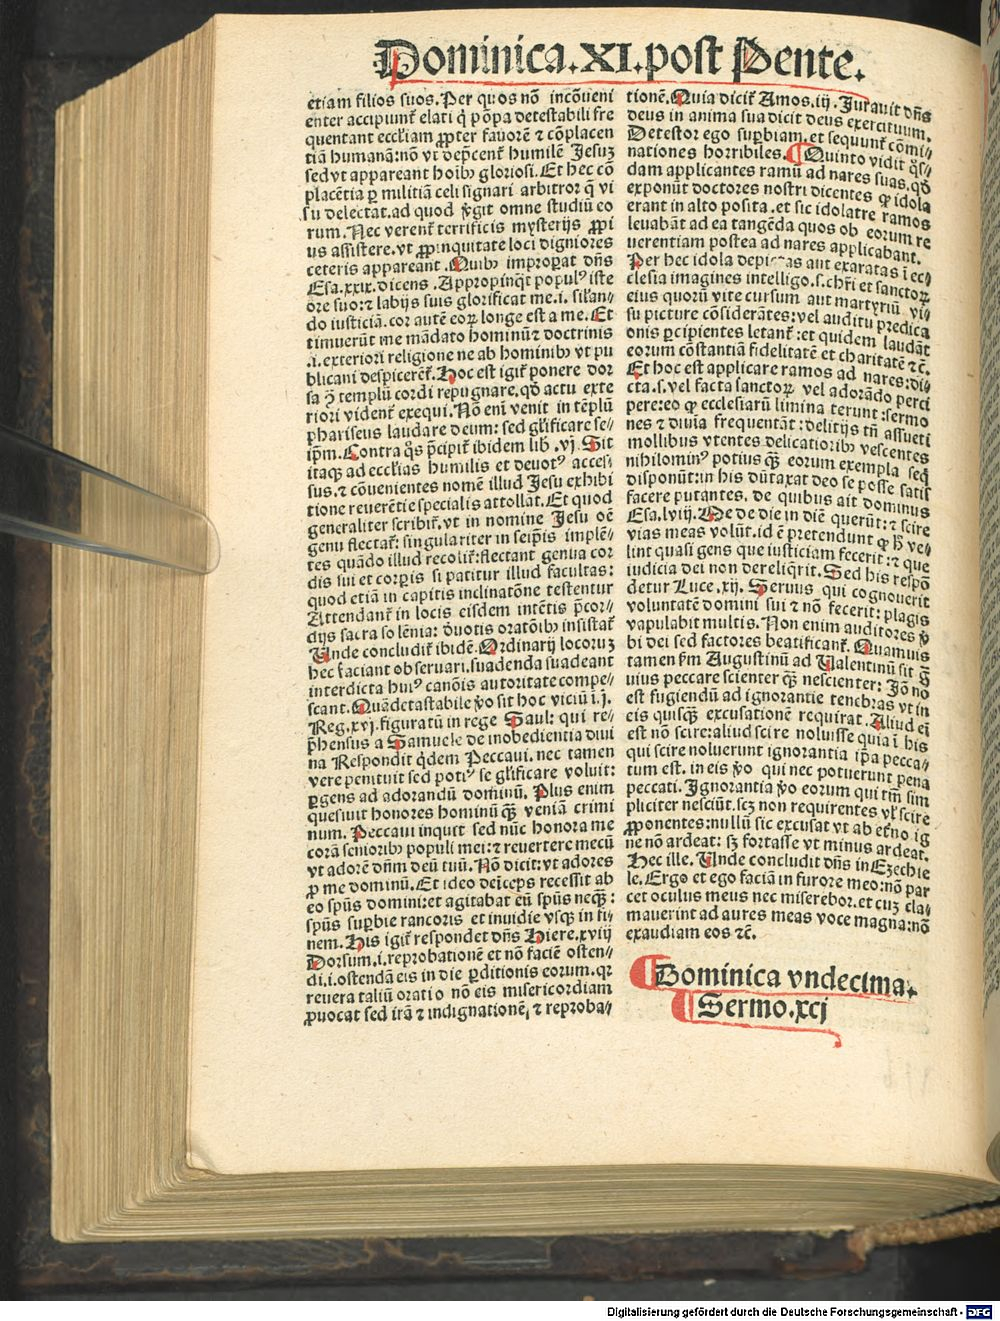 Dominica.XI.post Pente.
etiam filios suos. Per quos nō incōueni
enter accipiunt̄ elati q̇ pōpa detestabili fre
quentant eccl̄iam ꝓpter fauorē ⁊ cōplacen
tiā humanā: nō vt dep̄cent̄ humilē Jesuꝫ
sed vt appareant hoīb⁹ gloriosi. Et hec cō
placētia ꝑ militiā celi signari arbitror q̄ vi
su delectat. ad quod v̓git omne studiū eo
rum. Nec verent̄ terrificis mysterijs ꝓpi
us assistere. vt ꝓpinquitate loci digniores
ceteris appareant. Quib⁹ improꝑat dn̄s
Esa.xxix. dicens. Appropinq̄t popul⁹ iste
ore suo: ⁊ labijs suis glorificat me. i. silan⸗
do iusticiā. cor autē eoꝝ longe est a me. Et
timuerūt me mādato hominū ⁊ doctrinis
.i. exteriori religione ne ab hominib⁹ vt pu
blicani despicerēt̄. Hoc est igit̄ ponere dor
sa ꝯ templū cordi repugnare. qđ actu exte
riori vident̄ exequi. Nō eni venit in tēplū
phariseus laudare deum: sed gl̄ificare se⸗
ip̄m. Contra q̄s p̄cipit̄ ibidem lib .vj. Sit
itaqꝫ ad eccl̄ias humilis et deuot⁹ acces⸗
sus. ⁊ cōuenientes nomē illud Jesu exhibi
tione reuerētie specialis attollāt. Et quod
generaliter scribit̄. vt in nomine Jesu oē
genu flectat̄: singulariter in seip̄is implē⸗
tes quādo illud recolit̄: flectant genua cor
dis sui et corꝑis si patitur illud facultas:
quod etiā in capitis inclinatōne testentur
Attendant̄ in locis eisdem intētis p̄cor⸗
dijs sacra solēnia: deuotis oratōib⁹ insistat̄
Unde concludit̄ ibidē. Ordinarij locoruꝫ
hec faciant obseruari. suadenda suadeant
interdicta hui⁹ canōis autoritate compe⸗
scant. Quā detastabile v̓o sit hoc viciū i. j.
Reg.xvj. figuratū in rege Saul: qui re⸗
p̄hensus a Samuele de inobedientia diui
na Respondit q̇dem Peccaui. nec tamen
vere penituit sed poti⁹ se gl̄ificare voluit:
ꝑgens ad adorandū dominū. Plus enim
quesiuit honores hominū qꝫ̄ veniā crimi
num. Peccaui inquit sed nūc honora me
corā seniorib⁹ populi mei: ⁊ reuertere mecū
vt adorē dn̄m deū tuū. Nō dicit: vt adores
ꝓ me dominū. Et ideo deīceps recessit ab
eo sp̄us domini: et agitabat eū sp̄us neqꝫ:
sp̄us suꝑbie rancoris et inuidie vsqꝫ in fi⸗
nem. His igit̄ respondet dn̄s Hiere.xviij
Dorsum .i. reprobationē et nō faciē osten⸗
di. i. ostendā eis in die ꝑditionis eorum. qꝛ
reuera taliū oratio nō eis misericordiam
ꝓuocat sed irā ⁊ indignationē, ⁊ reproba⸗
tionē. Quia dicit̄ Amos.iij. Jurauit dn̄s
deus in anima sua dicit deus exercituum.
Detestor ego suꝑbiam. et sequunt̄ cōmi⸗
nationes horribiles. ¶ Quinto vidit q̄s⸗
dam applicantes ramū ad nares suas. qđ
exponūt doctores nostri dicentes ꝙ idola
erant in alto posita. et sic idolatre ramos
leuabāt ad ea tangēda quos ob eorum re
uerentiam postea ad nares applicabant.
Per hec idola aut exaratas ī ec⸗
clesia imagines intelligo. s. chr̄i et sanctoꝝ
eius quorū vite cursum aut martyriū vi⸗
su picture cōsiderātes: vel auditu predica
onis ꝑcipientes letant̄: et quidem laudāt
eorum cōstantiā fidelitatē et charitatē ⁊c̄.
Et hoc est applicare ramos ad nares: di⸗
cta. s. vel facta sanctoꝝ vel adorādo perci
pere: eo ꝙ ecclesiarū limina terunt: sermo
nes ⁊ diuia frequentāt: delitijs tn̄ assueti
mollibus vtentes delicatiorib⁹ vescentes
nihilomin⁹ potius qꝫ̄ eorum exempla seq̄
disponūt: in his dūtaxat deo se posse satis
facere putantes. de quibus ait dominus
Esa.lviij. Me de die in diē querūt: ⁊ scire
vias meas volūt. id ē pretendunt ꝙ h̄ ve⸗
lint quasi gens que iusticiam fecerit: ⁊ que
iudicia dei non dereliq̄rit. Sed his respō
detur Luce.xij. Seruus qui cognouerit
voluntatē domini sui ⁊ nō fecerit: plagis
vapulabit multis. Non enim auditores v̓
bi dei sed factores beatificant̄. Quamuis
tamen s̄m Augustinū ad Ualentinū sit g̃
uius peccare scienter qꝫ̄ nescienter: Jō nō
est fugiendū ad ignorantie tenebras vt in
eis quisqꝫ excusationē requirat. Aliud ei
est nō scire: aliud scire noluisse quia ī his
qui scire noluerunt ignorantia ip̄a pecca⸗
tum est. in eis v̓o qui nec potuerunt pena
peccati. Ignorantia v̓o eorum qui tm̄ sim
pliciter nesciūt. scꝫ non requirentes vl̓ scire
ꝓponentes: nullū sic excusat vt ab et̓no ig
ne nō ardeat: sꝫ fortasse vt minus ardeat.
Hec ille. Unde concludit dn̄s in Ezechie
le. Ergo et ego faciā in furore meo: nō par
cet oculus meus nec miserebor. et cuꝫ cla⸗
mauerint ad aures meas voce magna: nō
exaudiam eos ⁊c̄.
¶ Dominica vndecima.
¶ Sermo.xcj
Digitalisierung gefördert durch die Deutsche Forschungsgemeinschaft - DFG